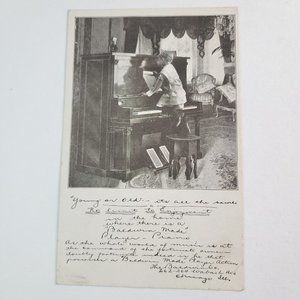 "Young or Old - it's all the same
No Limit To Enjoyment
in the home
where there is a
Baldwin Made
Player-Piano
As the whole world of music is at
the command of the fortunate owner
doubly fortunate indeed is he if that
a Baldwin Made Player Action
The Baldwin Co.
Wabash Ave
Chicago Ill.